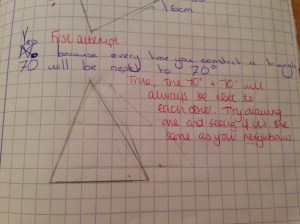 16cm
Yep First attempt
No because every time you construct a triangle
70 will be next to 70°
True, the 70° + 70° will
always be next to
each other. Try drawing
one and seeing if it's the
same as your neighbours.